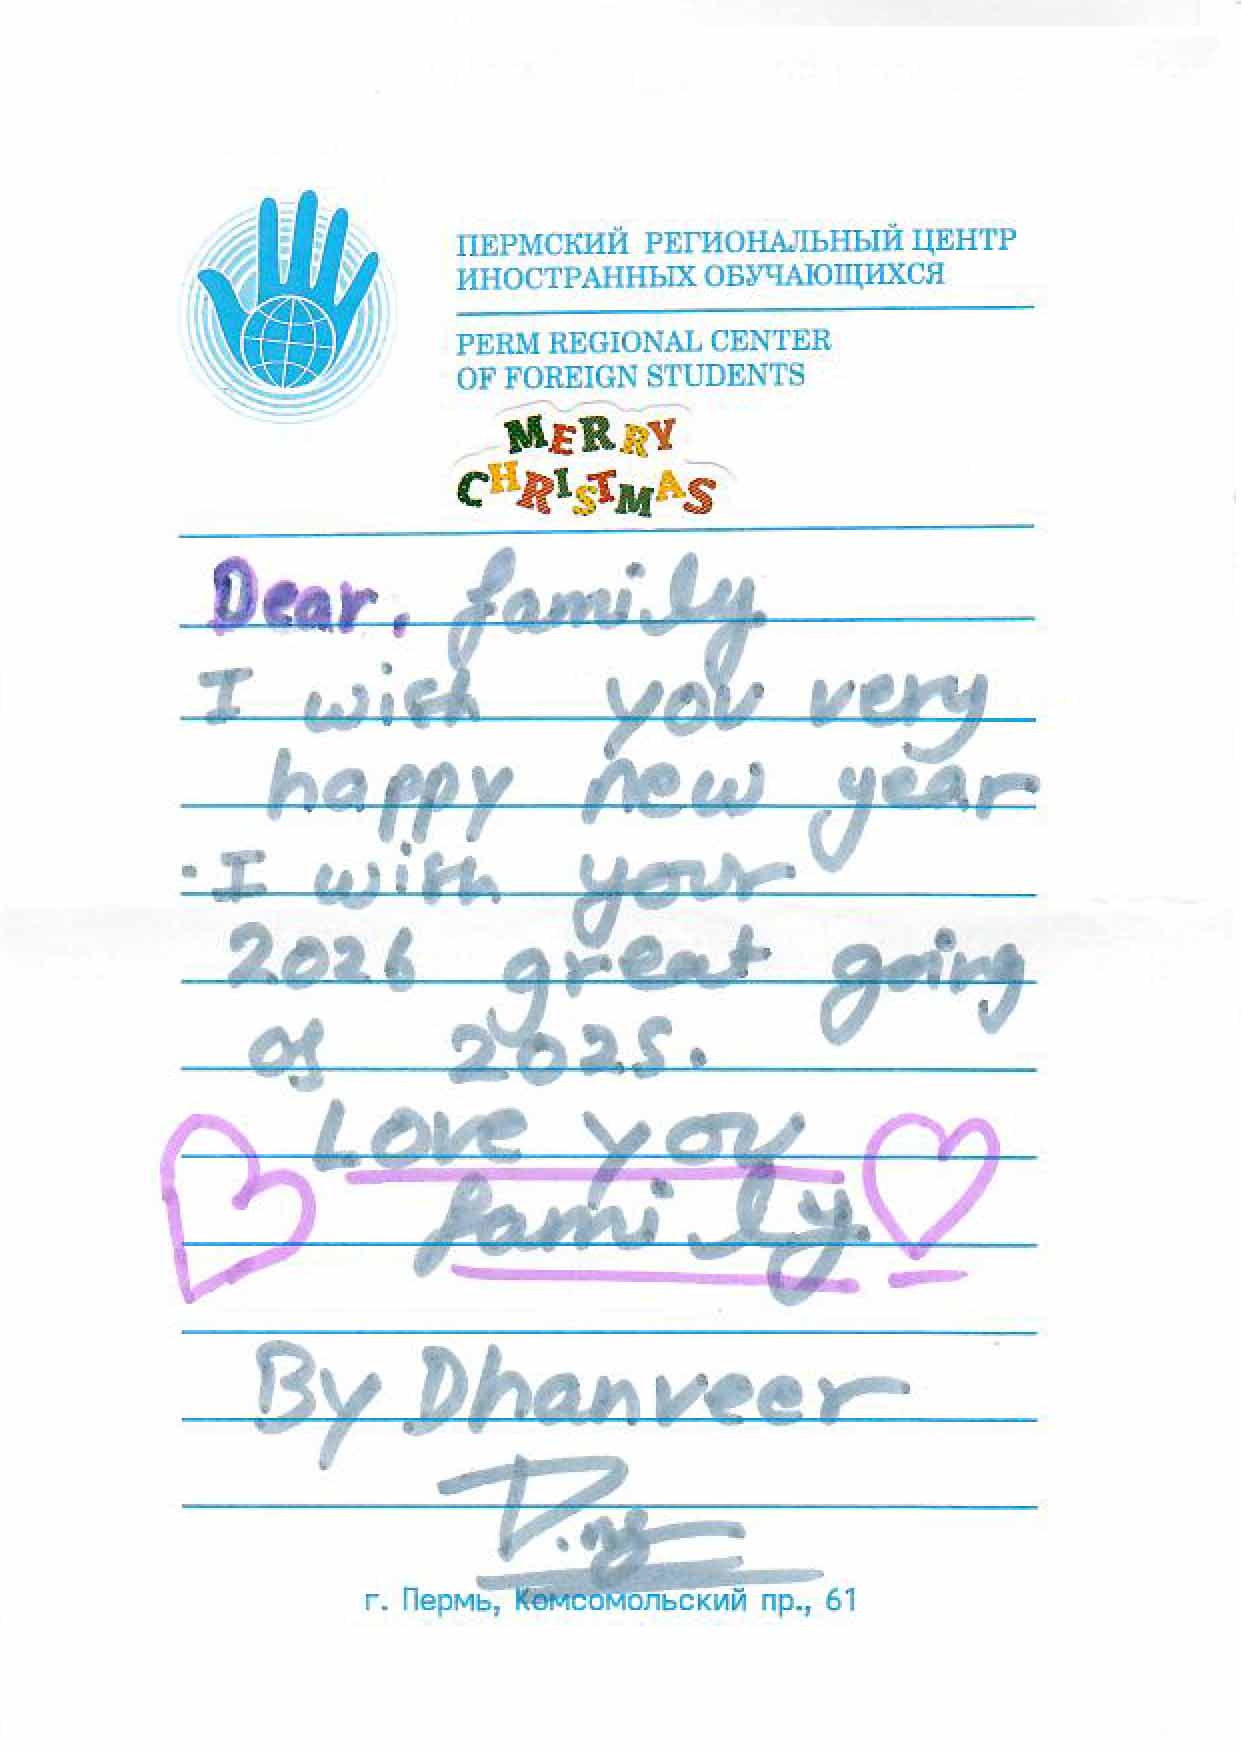 ПЕРМСКИЙ РЕГИОНАЛЬНЫЙ ЦЕНТР
ИНОСТРАННЫХ ОБУЧАЮЩИХСЯ
PERM REGIONAL CENTER
OF FOREIGN STUDENTS
MERRY
CHRISTMAS
Dear, family
I wish you very
happy new year
I wish your
2026 great going
of 2025.
Love you
family
By Dhanveer
г. Пермь, Комсомольский пр., 61